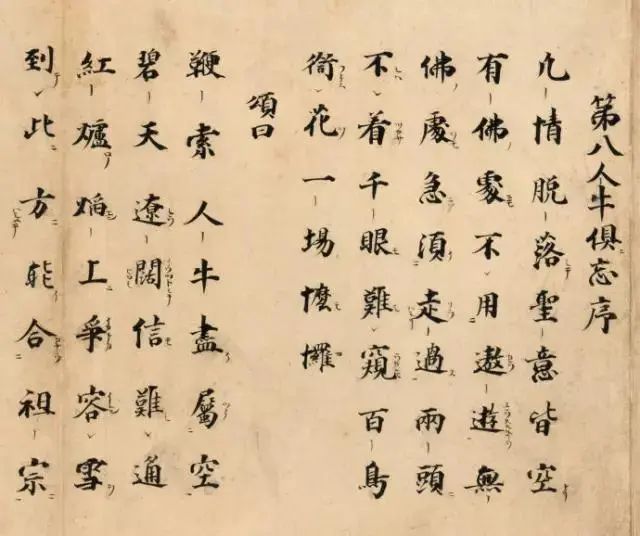 第八人牛俱忘序
凡情脱落聖意皆空
有佛處不用遨遊無
佛處急須走過兩頭
不着千眼難窺百鳥
衘花一場懡㦬
頌曰
鞭索人牛盡屬空
碧天遼闊信難通
紅爐焰上爭容雪
到此方能合祖宗